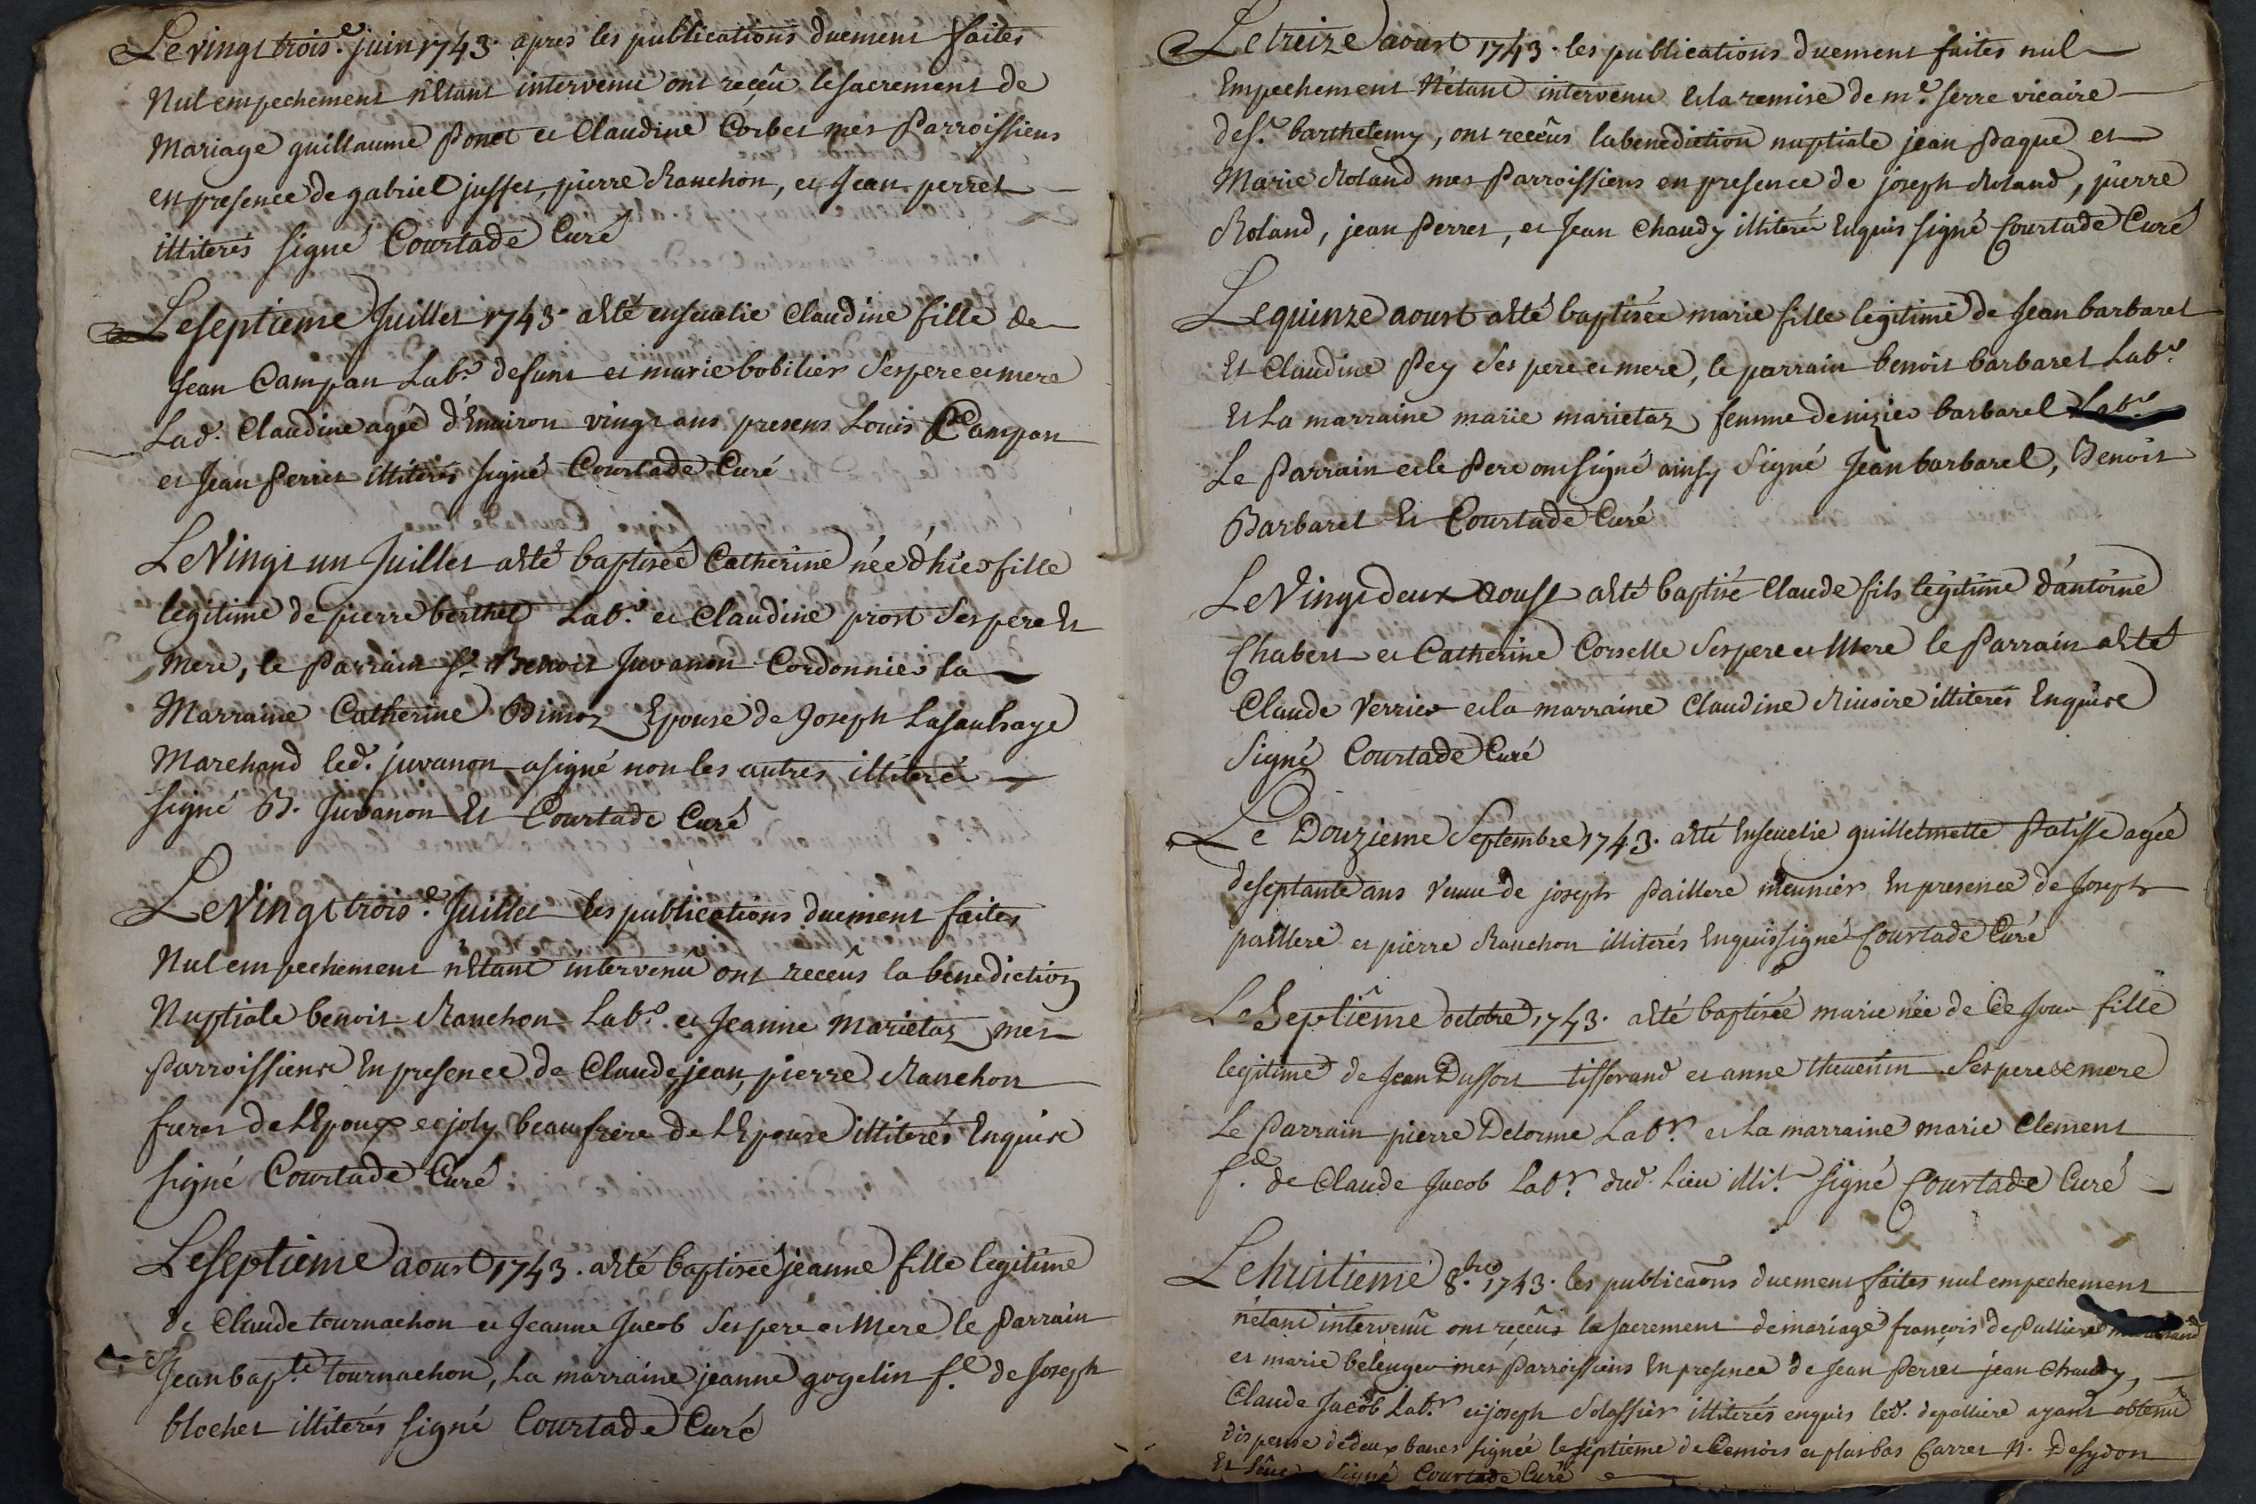 Le vingt trois.e juin 1743. apres les publications duement faites
Nul empechement n'Etant intervenu ont reçeu le sacrement de
Mariage guillaume Ponet et Claudine Corbet mes Parroissiens
en presence de gabriel juffet, pierre Ranchon, et Jean perret
illiterés signé Courtade Curé
Le septieme Juillet 1743. a Eté ensevelie Claudine fille de
Jean Campan Lab.r defunt et marie bobilier Ses pere et mere
Lad. Claudine agée d'Environ vingt ans presens Louis Campan
et Jean Perret illiterés signé Courtade Curé
Le Vingt un Juillet a Eté baptisée Catherine née d'hier fille
legitime de pierre berthet Lab.r et Claudine prost Ses pere Et
mere, le Parrain s.r Benoit Juvanon Cordonnier la
Marraine Catherine Dimoz Epouse de Joseph Lasaulsaye
Marchand led. juvanon a signé non les autres illiteré
signé B. Juvanon Et Courtade Curé
Le Vingt trois.e Juillet les publications duement faites
Nul empechement n'Etant intervenu ont receus la benediction
Nuptiale benoit Ranchon Lab.r et Jeanne Marietaz mes
Parroissiens En presence de Claude, jean, pierre Ranchon
freres de L'Epoux et joly beaufrere de L'Epouse illiterés Enquise
signé Courtade Curé
Le septieme aoust 1743. a Eté baptisée jeanne fille legitime
de Claude tournachon et Jeanne Jacob Ses pere et Mere le Parrain
Jean bap.te tournachon, La marraine jeanne gogelin f.e de Joseph
blochet illiterés signé Courtade Curé
Le treize aoust 1743. les publications duement faites nul
Empechement N'etant intervenu Et la remise de m.e serre vicaire
de s.t barthelemy, ont receus la benediction nuptiale jean Paque et
Marie Roland mes Parroissiens en presence de joseph Roland, pierre
Roland, jean Perret, et Jean Chaudy illiteré Enquis signé Courtade Curé
Le quinze aoust a Eté baptisée marie fille legitime de Jean barbaret
Et Claudine Pey Ses pere et mere, le parrain benoit barbaret Lab.r
Et La marraine marie marietaz femme de nizier barbaret Lab.r
Le Parrain et le Pere ont signé ainsy Signé Jean barbaret, Benoit
Barbaret Et Courtade Curé
Le Vingt deux aoust a Eté baptisé Claude fils legitime d'antoine
Chabert et Catherine Corselle Ses pere et Mere le Parrain a Eté
Claude Verrier et la marraine Claudine illiterés Enquise
Signé Courtade Curé
Le Douzieme Septembre 1743. a Eté Ensevelie guillelmette Patisse agée
de septante ans Veuve de joseph Paillere meunier En presence de Joseph
paillere et pierre Ranchon illiterés Enquis signé Courtade Curé
Le Septiême octobre 1743. a Eté baptisée marie née de Ce Jour fille
legitime de Jean Dussort tisserand et anne thevenin Ses pere et mere
Le Parrain pierre Delorme Lab.r et La marraine marie Clement
f.e de Claude Jacob Lab.r dud. Lieu illit. signé Courtade Curé
Le huitieme 8.bre 1743. les publicaõns duement faites nul empechement
n'etant intervenu ont reçeus le sacrement de mariage françois de Pulliere
et marie mes Parroissiens En presence de Jean Perret jean Chaudy,
Claude Jacob Lab.r et joseph Solassier illiterés enquis led. depalliere ayant obtenu
dispense de deux bancs signée le septieme de Ce mois et plus bas Carret N. Desydon
Et signé Courtade Curé